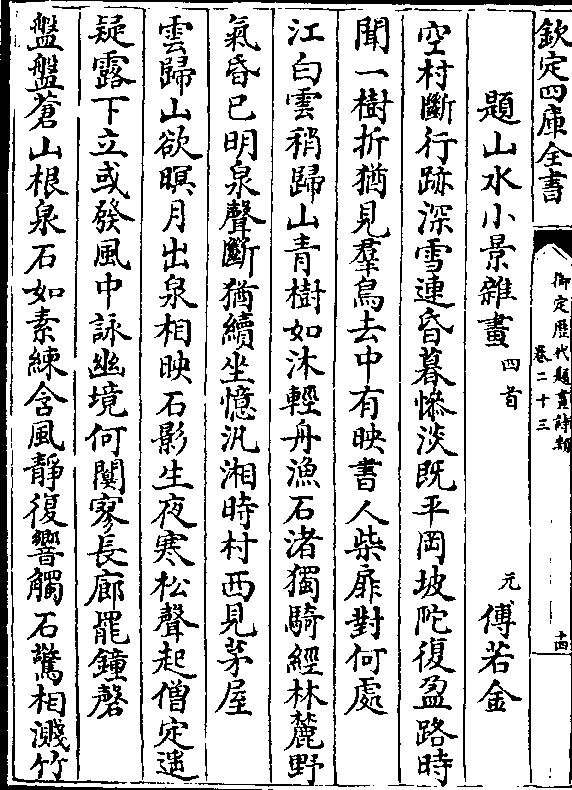 欽定四庫全書
御定歷代題畫詩類
卷二十三
十四
題山水小景雜畫四首
元傅若金
空村斷行跡深雪連昏暮慘淡既平岡坡陀復盈路時
聞一樹折猶見羣鳥去中有映書人柴扉對何處
江白雲稍歸山青樹如沐輕舟漁石渚獨騎經林麓野
氣昏已明泉聲斷猶續坐憶汎湘時村西見茅屋
雲歸山欲暝月出泉相映石影生夜寒松聲起僧定遥
疑露下立或發風中詠幽境何闃寥長廊罷鐘磬
盤盤蒼山根泉石如素練含風靜復響觸石驚相濺竹